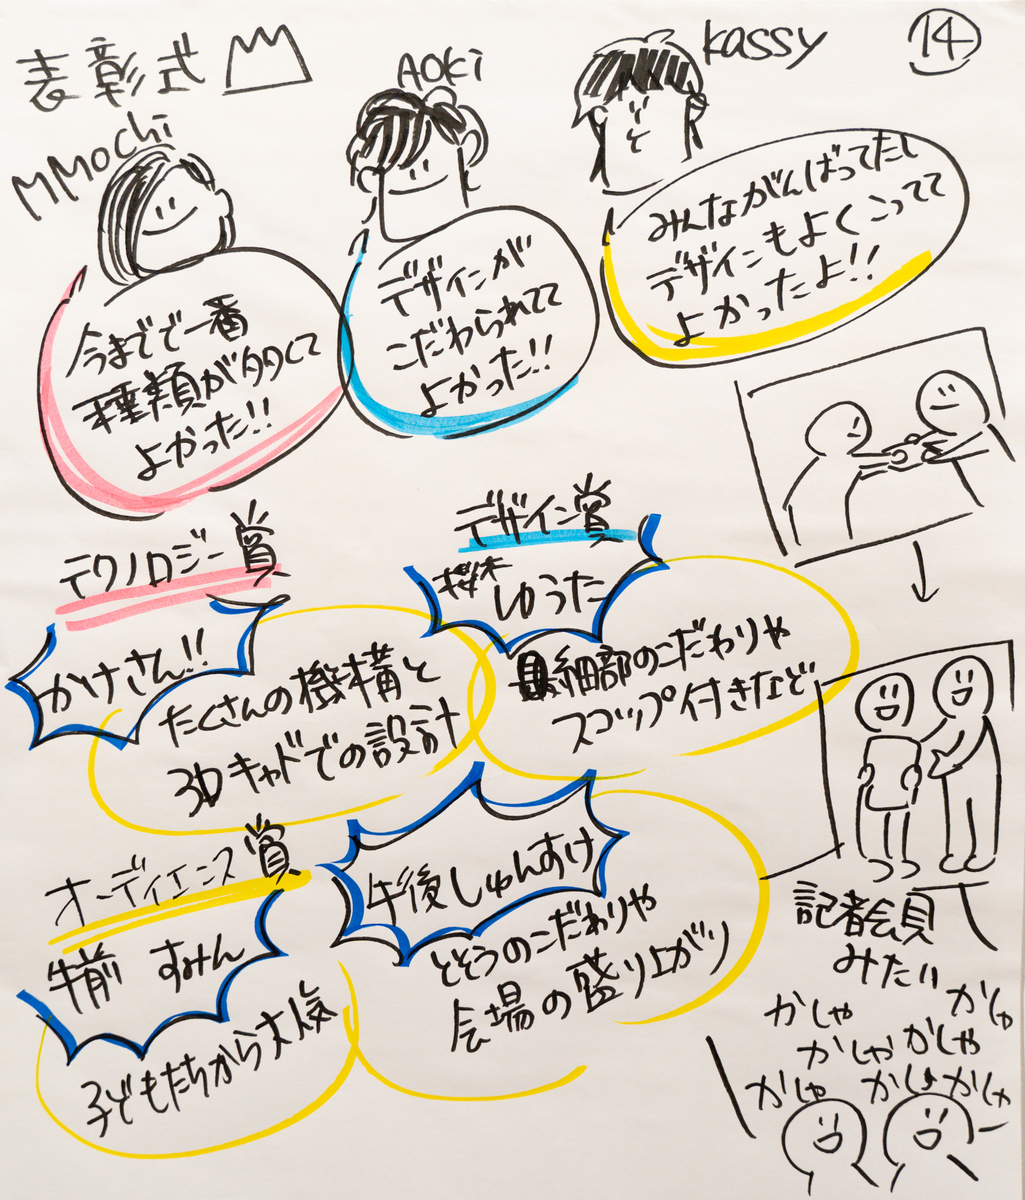 表彰式
14
MMochi
AOKi
kassy
今までで一番
種類が多くて
よかった!!
デザインが
こだわられてて
よかった!!
みんながんばってたし
デザインもよくこってて
よかったよ!!
テクノロジー賞
かけさん!!
たくさんの機構と
3Dキャドでの設計
デザイン賞
桜木
ゆうた
細部のこだわりや
スコップ付きなど
オーディエンス賞
午前 すみん
子どもたちから大人気
午後しゅんすけ
とそうのこだわりや
会場の盛り上がり
記者会見
みたい
かしゃ
かしゃ
かしゃ
かしゃ
かしゃ
かしゃ
かしゃ